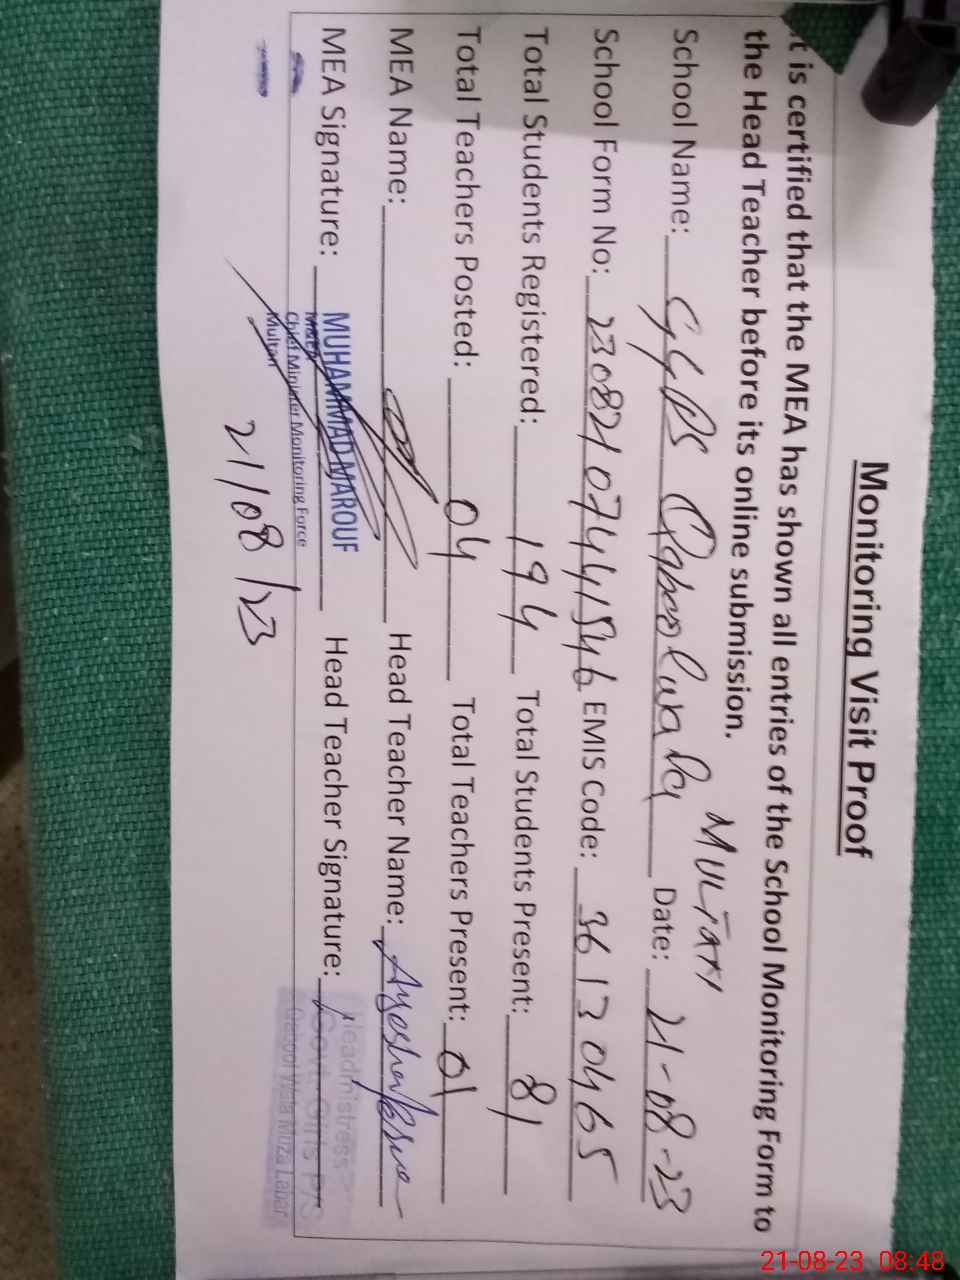 Monitoring Visit Proof
It is certified that the MEA has shown all entries of the School Monitoring Form to
the Head Teacher before its online submission.
MULTAN
School Name: GGPS Qabool wala Date: 21-08-23
School Form No: 230821074441546 EMIS Code: 36130465
Total Students Registered: 194 Total Students Present: 81
Total Teachers Posted: 04 Total Teachers Present: 01
MEA Name: Head Teacher Name: Ayesha
MEA Signature: Head Teacher Signature:
MUHAMMAD MAROUF
M&EA
Chief Minister Monitoring Force
Multan
Headmistress
Govt. Girls P/S
Qabool Wala Muza Labar
21/08/23
21-08-23 08:48